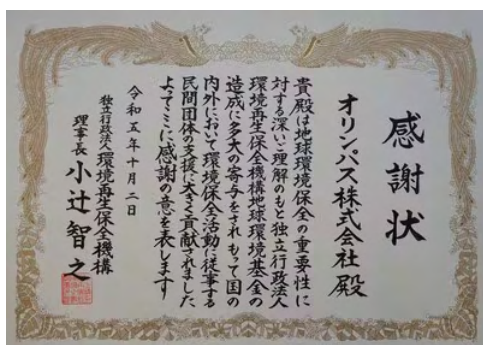 感謝状
オリンパス株式会社殿
貴殿は地球環境保全の重要性に
対する深いご理解のもと独立行政法人
環境再生保全機構地球環境基金の
造成に多大の寄与をされもって国の
内外において環境保全活動に従事する
民間団体の支援に大きく貢献されました
よってここに感謝の意を表します
令和五年十月二日
独立行政法人環境再生保全機構
理事長小辻智之